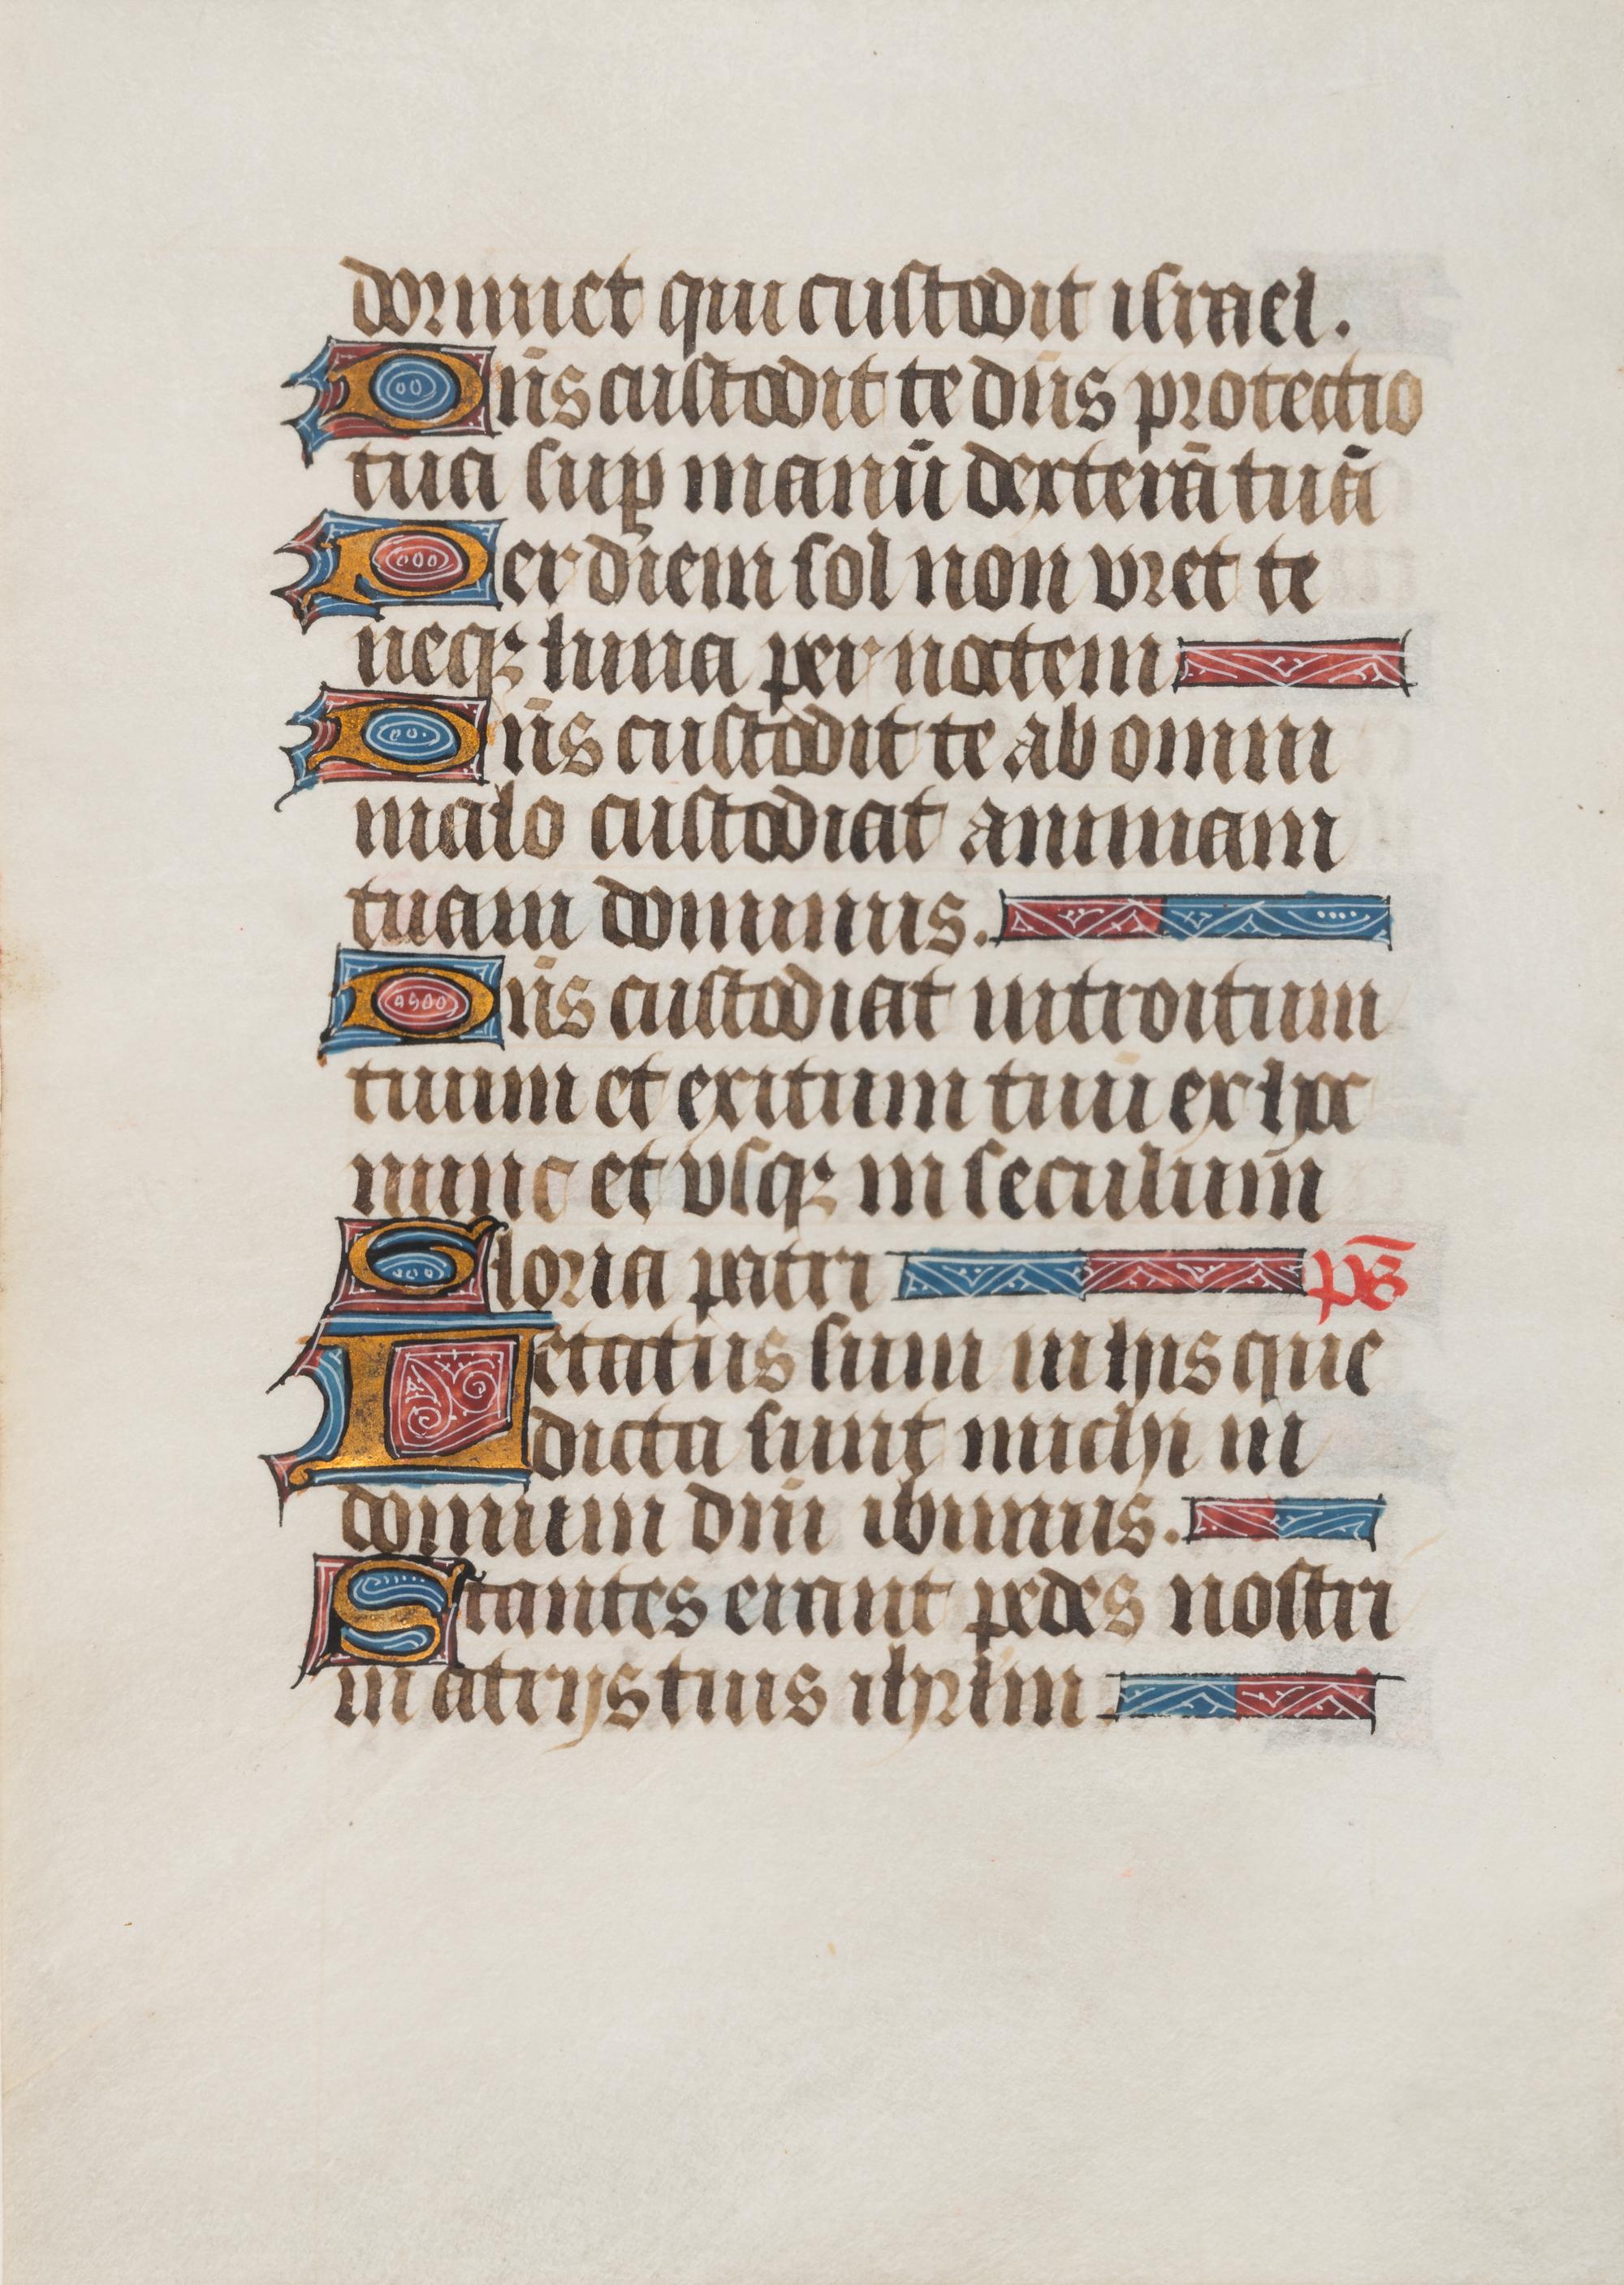 dormiet qui custodit israel.
Dn̄s custodit te dn̄s protectio
tua suꝑ manū dexterā tuā
Per diem sol non vret te
neqꝫ luna per noctem
Dn̄s custodit te ab omni
malo custodiat animam
tuam dominus.
Dn̄s custodiat introitum
tuum et exitum tuū ex hoc
nunc et vsqꝫ in seculum
Gloria patri p̄s
Letatus sum in his que
dicta sunt michi in
domum dn̄i ibimus.
Stantes erant pedes nostri
in atrijs tuis ihrlm